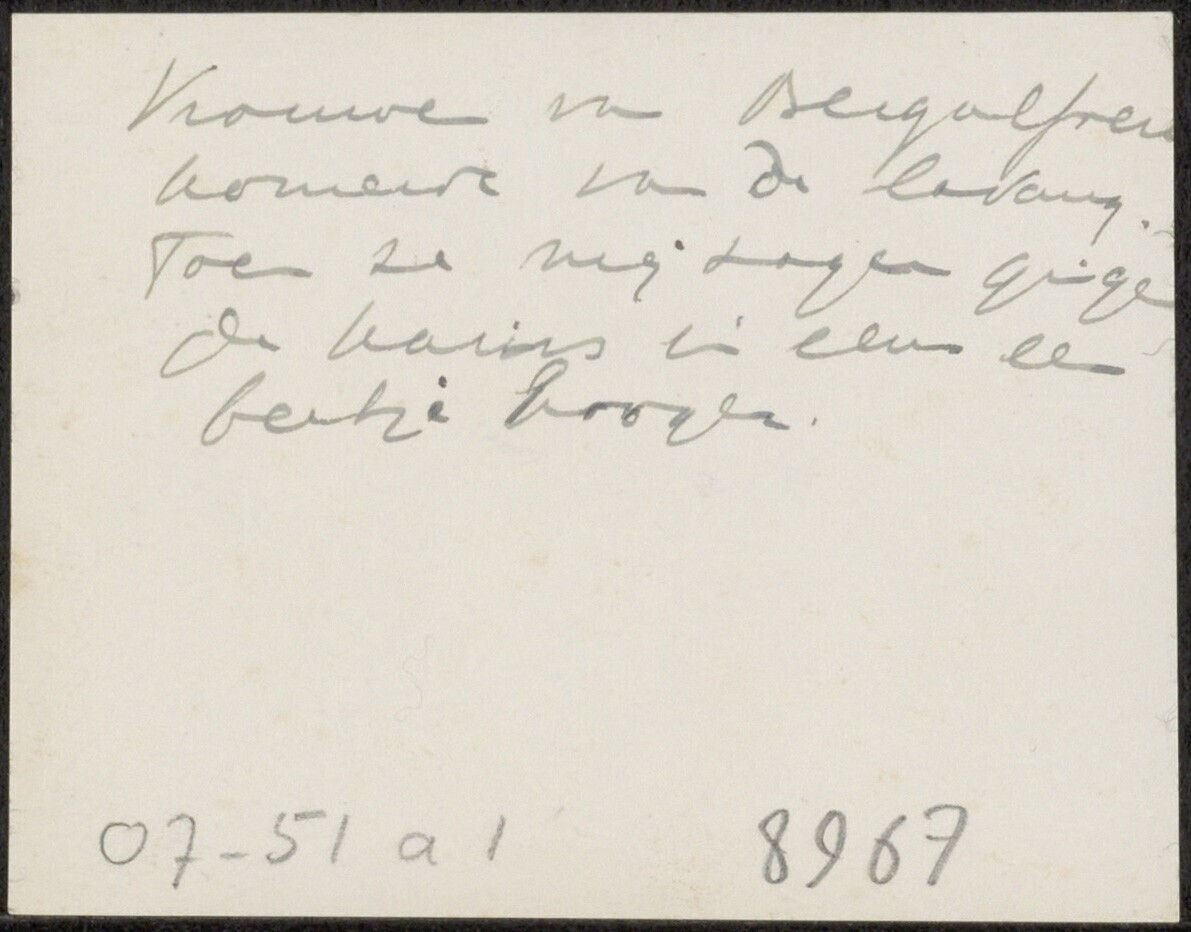 Vrouwen van Bergalfren
komende van de ladang.
Toen ze mij zagen gingen
de kains in eens een
beetje hooger.
07-51 a 1 8967